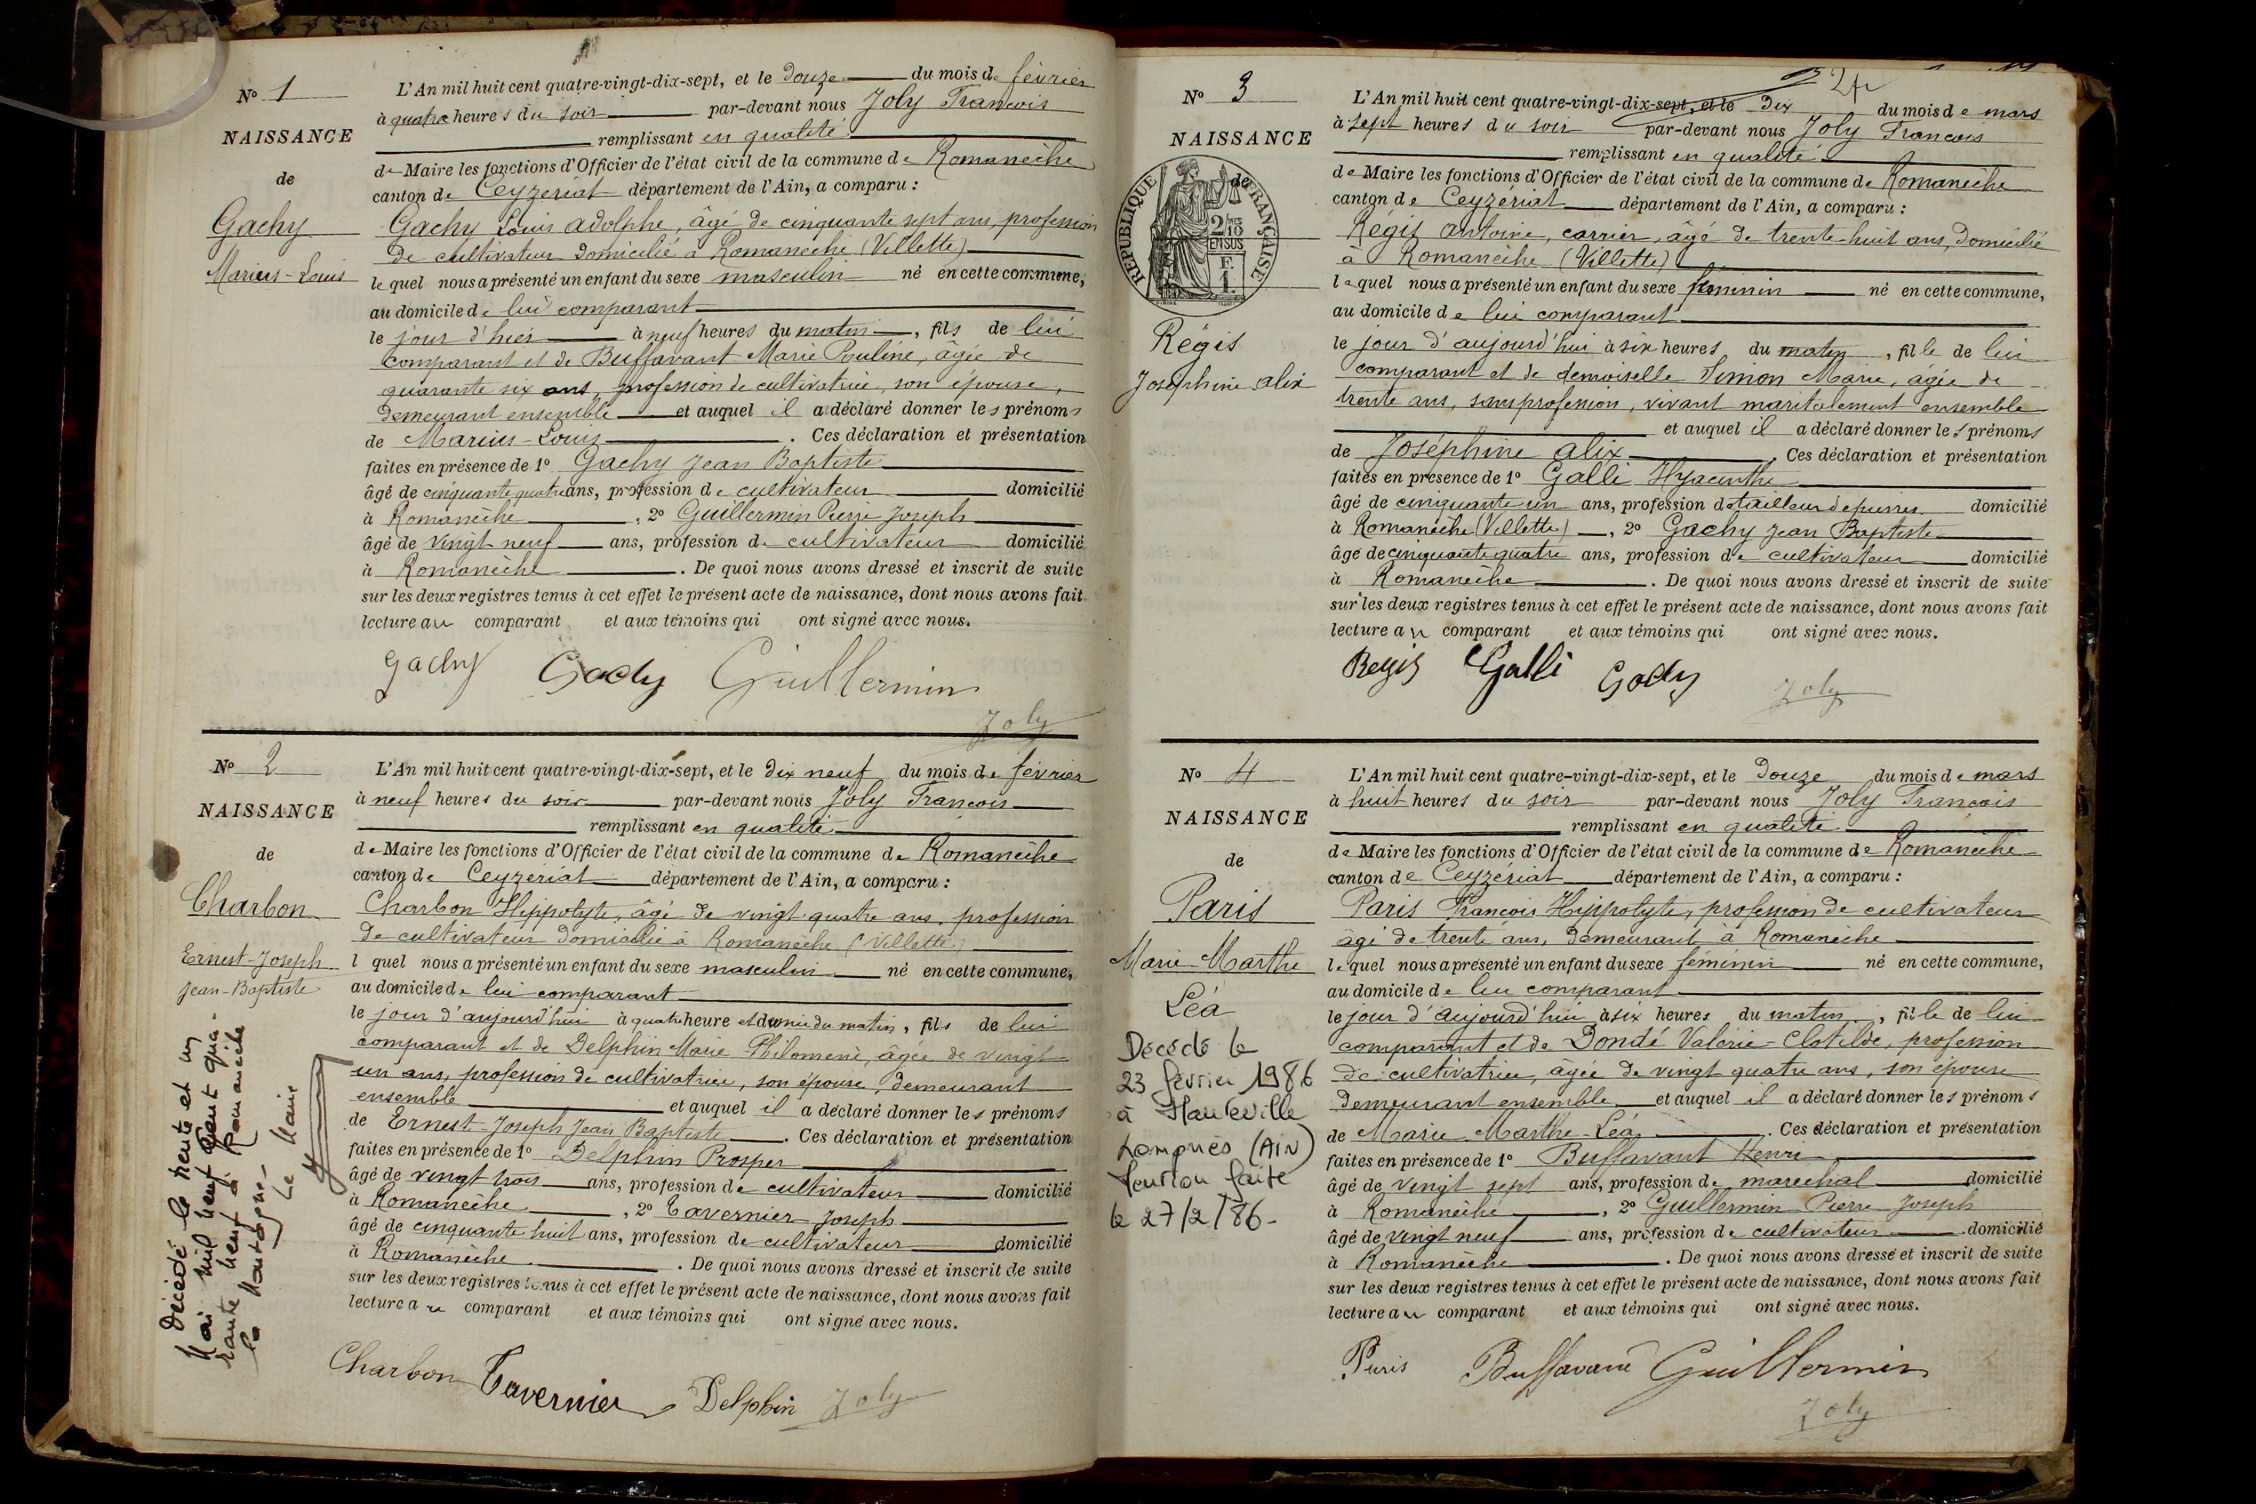 Nº 1
NAISSANCE
de
Gachy
Marius-Louis
L'An mil huit cent quatre-vingt-dix-sept, et le Douze du mois de février
à quatre heures du soir par-devant nous Joly François
remplissant en qualité
de Maire les fonctions d'Officier de l'état civil de la commune de Romanèche
canton de Ceyzériat département de l'Ain, a comparu :
Gachy Louis adolphe, âgé de cinquante sept ans, profession
de cultivateur domicilié à Romanèche (Villette)
le quel nous a présenté un enfant du sexe masculin né en cette commune,
au domicile de lui comparant
le jour d'hier à neuf heures du matin, fils de lui
comparant et de Buffavant Marie Pouline, âgée de
quarante six ans, profession de cultivatrice, son épouse,
demeurant ensemble et auquel il a déclaré donner les prénoms
de Marius-Louis. Ces déclaration et présentation
faites en présence de 1º Gachy Jean Baptiste
âgé de cinquante quatre ans, profession de cultivateur domicilié
à Romanèche, 2º Guillermin Pierre Joseph
âgé de vingt neuf ans, profession de cultivateur domicilié
à Romanèche. De quoi nous avons dressé et inscrit de suite
sur les deux registres tenus à cet effet le présent acte de naissance, dont nous avons fait
lecture au comparant et aux témoins qui ont signé avec nous.
Gachy Gachy Guillermin
Joly
Nº 2
NAISSANCE
de
Charbon
Ernest-Joseph
Jean-Baptiste
Décédé le trente et un
Mai mil neuf cent qua-
rante neuf à Romanèche
la Montagne
Le Maire
L'An mil huit cent quatre-vingt-dix-sept, et le dix neuf du mois de février
à neuf heures du soir par-devant nous Joly François
remplissant en qualité
de Maire les fonctions d'Officier de l'état civil de la commune de Romanèche
canton de Ceyzériat département de l'Ain, a comparu :
Charbon Hippolyte, âgé de vingt quatre ans, profession
de cultivateur domicilié à Romanèche (Villette)
l quel nous a présenté un enfant du sexe masculin né en cette commune,
au domicile de lui comparant
le jour d'aujourd'hui à quatre heure et demie du matin, fils de lui
comparant et de Delphin Marie Philomène, âgée de vingt
un ans, profession de cultivatrice, son épouse, demeurant
ensemble et auquel il a déclaré donner les prénoms
de Ernest-Joseph Jean Baptiste. Ces déclaration et présentation
faites en présence de 1º Delphin Prosper
âgé de vingt trois ans, profession de cultivateur domicilié
à Romanèche, 2º Tavernier Joseph
âgé de cinquante huit ans, profession de cultivateur domicilié
à Romanèche. De quoi nous avons dressé et inscrit de suite
sur les deux registres tenus à cet effet le présent acte de naissance, dont nous avons fait
lecture au comparant et aux témoins qui ont signé avec nous.
Charbon Tavernier Delphin Joly
Nº 3
NAISSANCE
de
RÉPUBLIQUE FRANÇAISE
2/10 EN SUS
F. 1.
Régis
Joséphine alix
L'An mil huit cent quatre-vingt-dix-sept, et le dix du mois de mars
à sept heures du soir par-devant nous Joly François
remplissant en qualité
de Maire les fonctions d'Officier de l'état civil de la commune de Romanèche
canton de Ceyzériat département de l'Ain, a comparu :
Régis antoine, carrier, âgé de trente-huit ans, domicilié
à Romanèche (Villette)
lequel nous a présenté un enfant du sexe féminin né en cette commune,
au domicile de lui comparant
le jour d'aujourd'hui à six heures du matin, fille de lui
comparant et de demoiselle Simon Marie, âgée de
trente ans, sans profession, vivant maritalement ensemble
et auquel il a déclaré donner les prénoms
de Joséphine alix. Ces déclaration et présentation
faites en présence de 1º Galli Hyacinthe
âgé de cinquante un ans, profession de tailleur de pierres domicilié
à Romanèche (Villette), 2º Gachy Jean Baptiste
âgé de cinquante quatre ans, profession de cultivateur domicilié
à Romanèche. De quoi nous avons dressé et inscrit de suite
sur les deux registres tenus à cet effet le présent acte de naissance, dont nous avons fait
lecture au comparant et aux témoins qui ont signé avec nous.
Regis Galli Gachy Joly
Nº 4
NAISSANCE
de
Paris
Marie-Marthe
Léa
Décédé le
23 février 1986
à Hauteville
Lompnès (AIN)
Mention faite
le 27/2/86-
L'An mil huit cent quatre-vingt-dix-sept, et le Douze du mois de mars
à huit heures du soir par-devant nous Joly François
remplissant en qualité
de Maire les fonctions d'Officier de l'état civil de la commune de Romanèche
canton de Ceyzériat département de l'Ain, a comparu :
Paris François Hippolyte, profession de cultivateur
âgé de trente ans, demeurant à Romanèche
lequel nous a présenté un enfant du sexe féminin né en cette commune,
au domicile de lui comparant
le jour d'aujourd'hui à six heures du matin, fille de lui
comparant et de Dondé Valérie-Clotilde, profession
de cultivatrice, âgée de vingt quatre ans, son épouse
demeurant ensemble et auquel il a déclaré donner les prénoms
de Marie Marthe Léa. Ces déclaration et présentation
faites en présence de 1º Buffavant Henri
âgé de vingt sept ans, profession de maréchal domicilié
à Romanèche, 2º Guillermin Pierre Joseph
âgé de vingt neuf ans, profession de cultivateur domicilié
à Romanèche. De quoi nous avons dressé et inscrit de suite
sur les deux registres tenus à cet effet le présent acte de naissance, dont nous avons fait
lecture au comparant et aux témoins qui ont signé avec nous.
Paris Buffavant Guillermin
Joly